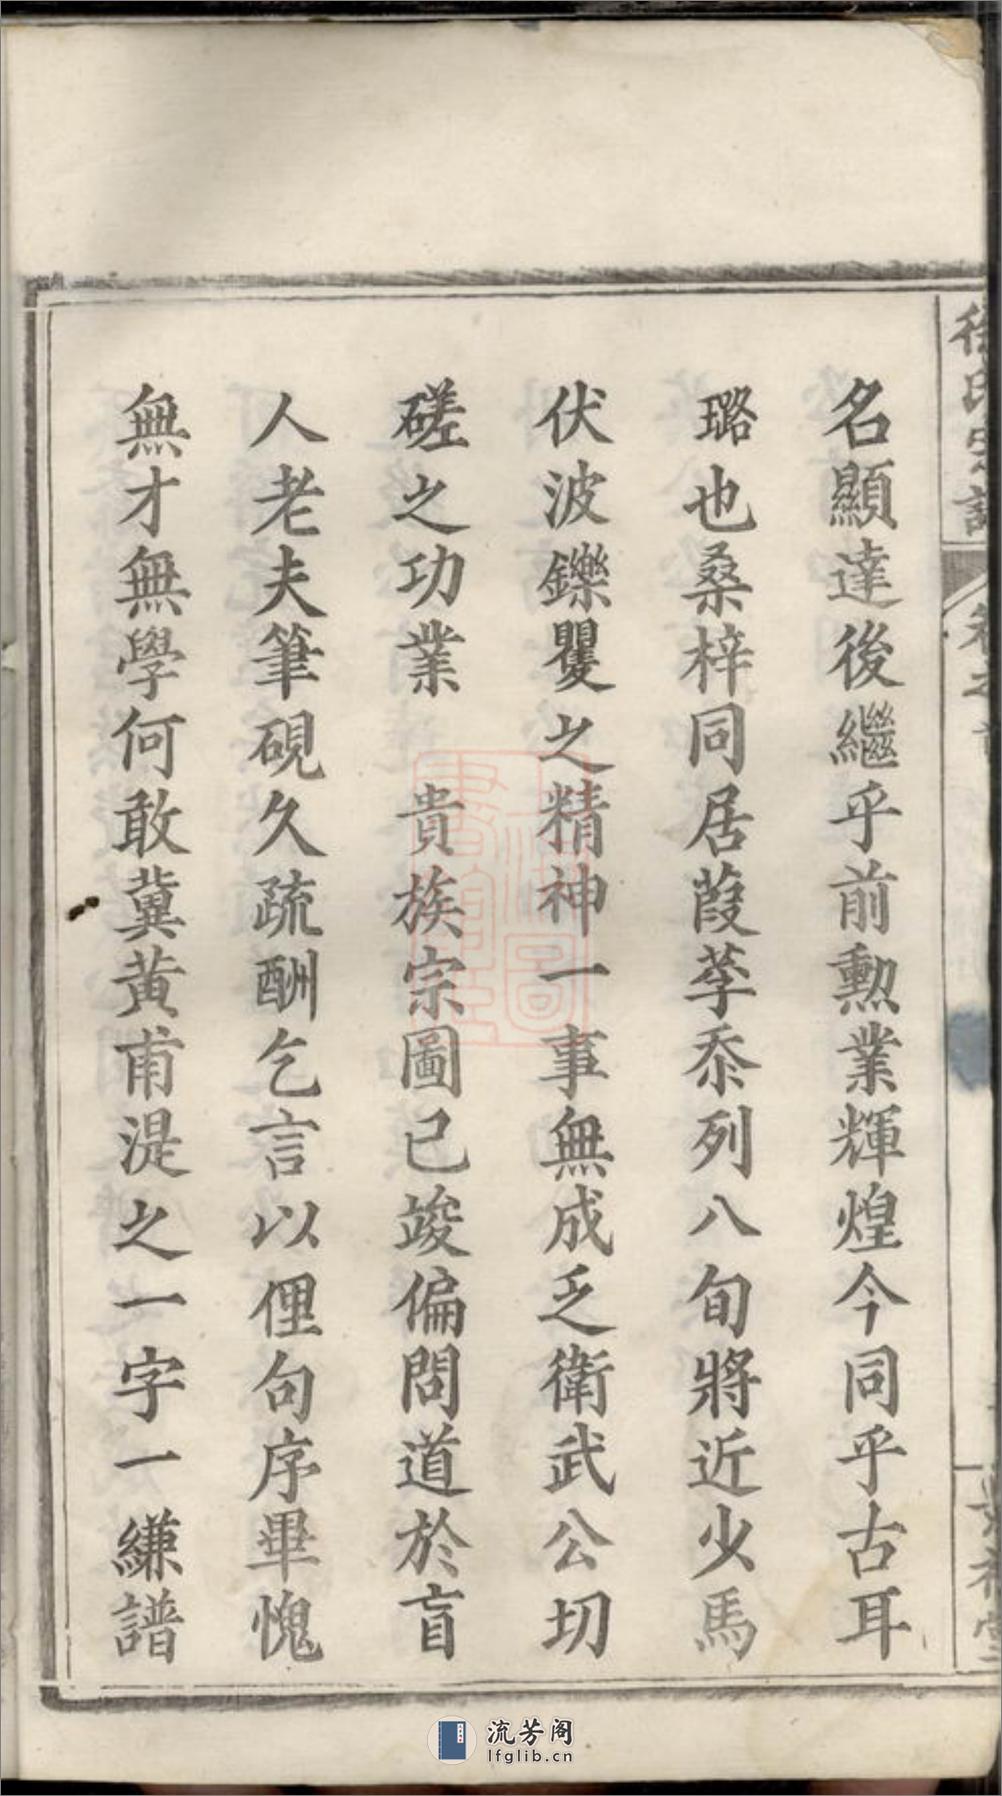 徐氏宗譜
卷之首
名顯達後繼乎前勲業輝煌今同乎古耳
璐也桑梓同居葭莩忝列八旬將近少馬
伏波鑠矍之精神一事無成乏衛武公切
磋之功業 貴族宗圖已竣偏問道於盲
人老夫筆硯久疏酬乞言以俚句序畢愧
無才無學何敢冀黄甫湜之一字一縑譜
流芳阁
lfglib.cn